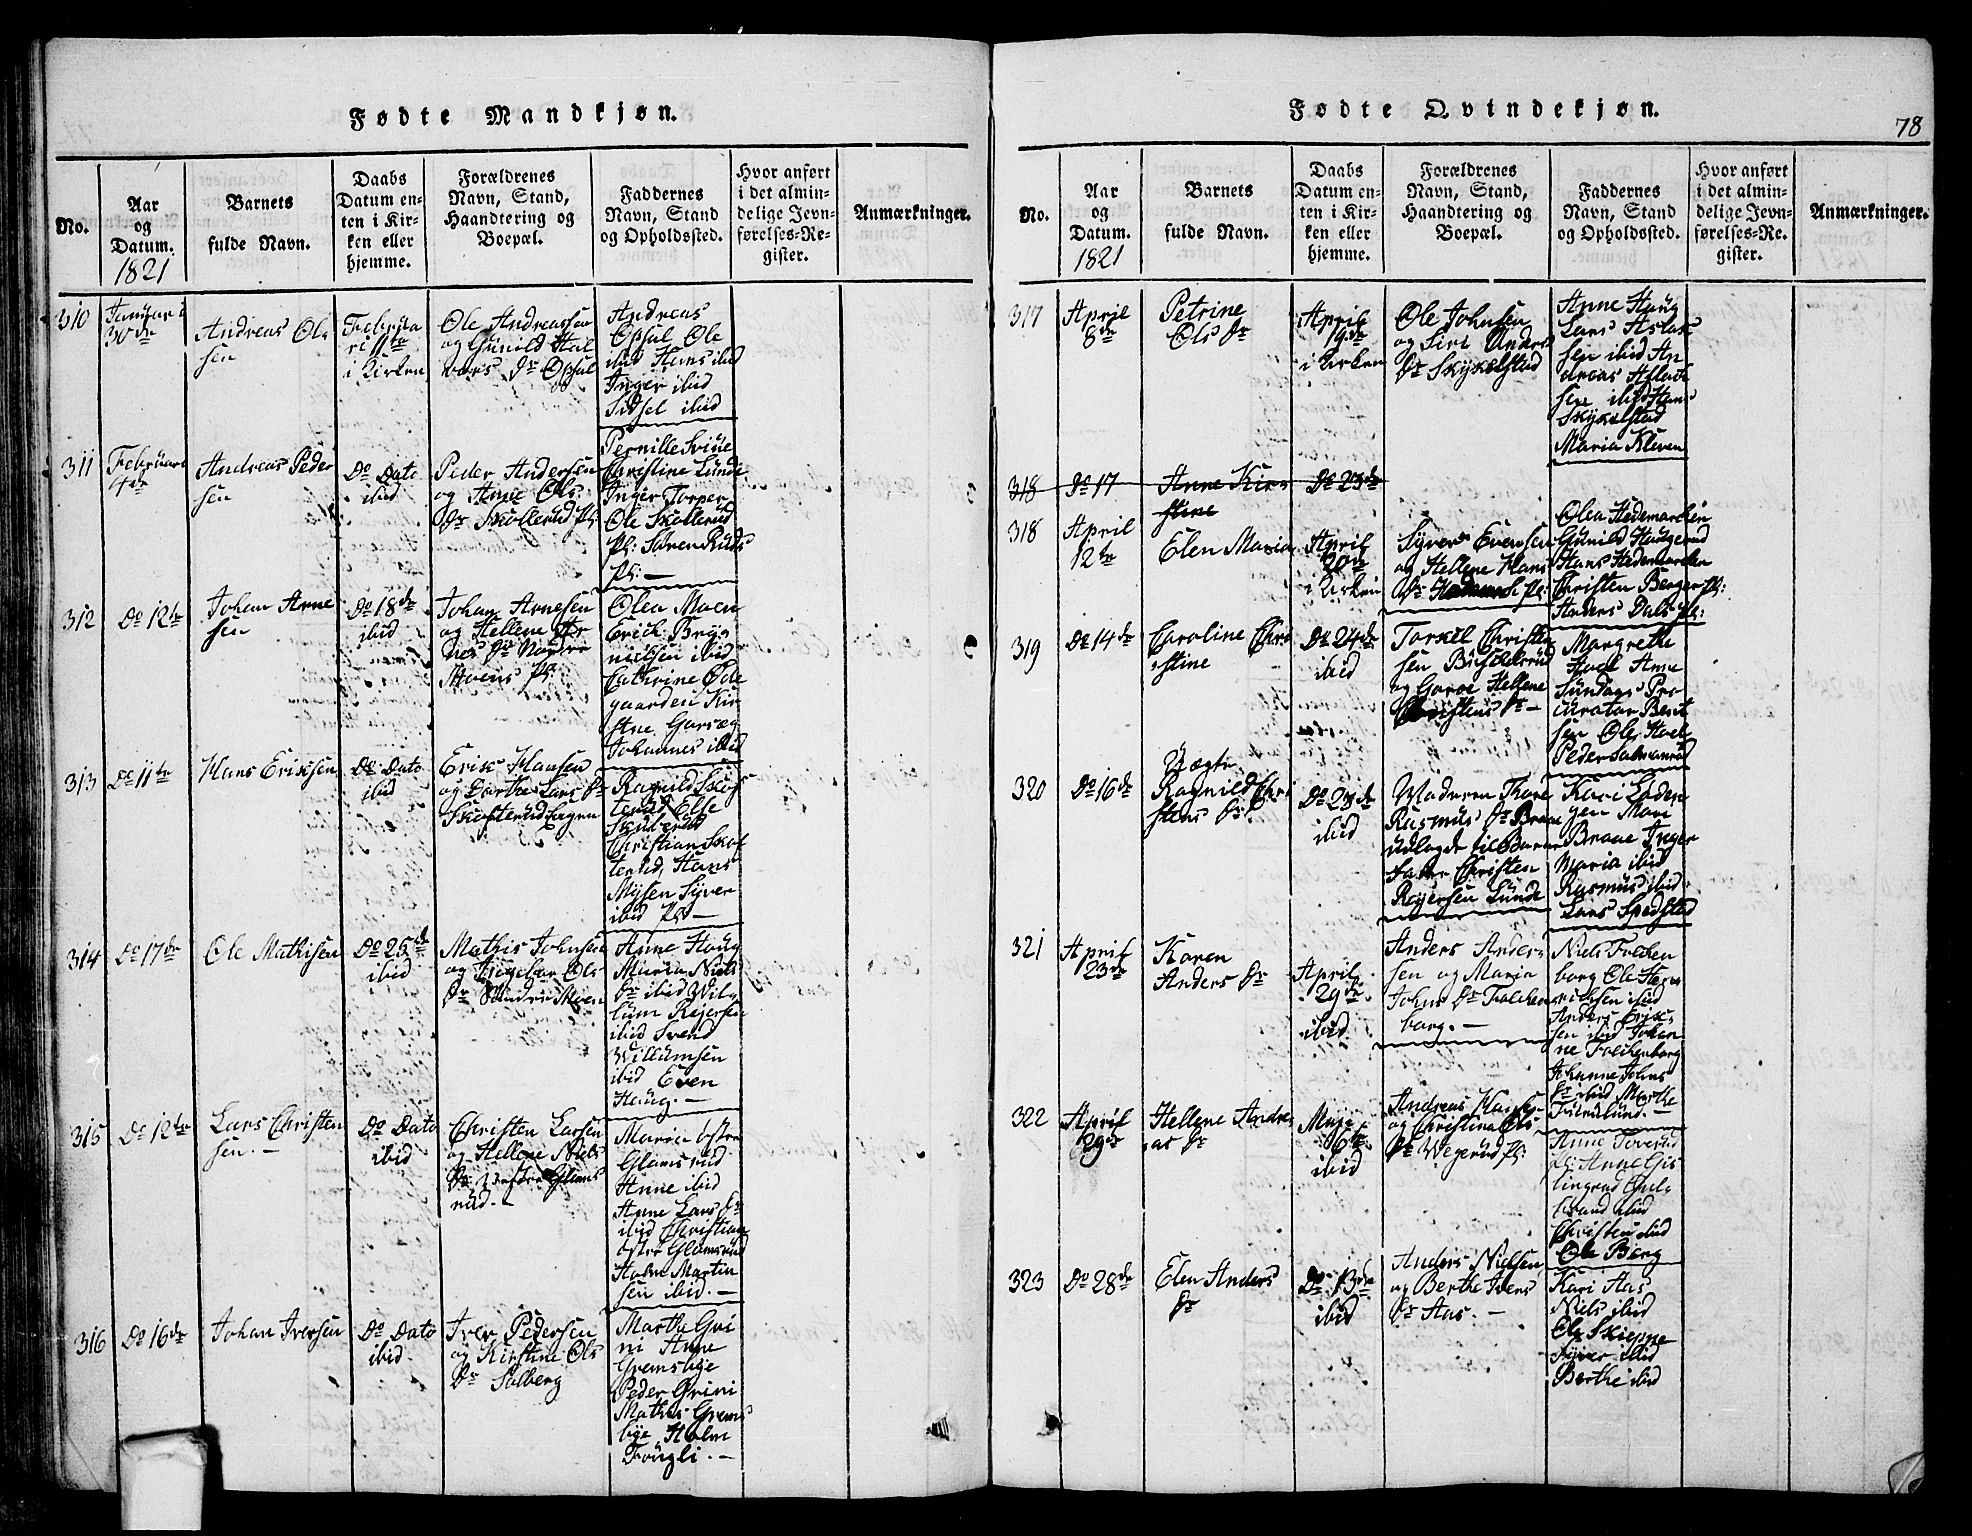 Fødte Mandkjøn.
No.
Aar
og
Datum.
1821
Barnets
fulde Navn.
Daabs
Datum en-
ten i Kir-
ken eller
hjemme.
Forældrenes
Navn, Stand,
Haandtering og
Boepæl.
Faddernes
Navn, Stand
og Opholdssted.
Hvor anført
i det almin-
delige Jevn-
førelses-Re-
gister.
Anmærkninger.
310
Januari
30de
Andreas Ol-
sen
Februa
ri 11te
i Kirken
Ole Andreassen
og Gunild Hal
vors Dr Opsal
Andreas
Opsal Ole
ibid Hans ibid
Inger ibid
Sidsel ibid
311
Februari
4de
Andreas Peder
sen
Do Dato
ibid
Peder Andersen
og Anne Ols
Dr Skollerud Pl:
Pernille
Christine Lunde
Inger Torper
Ole Skollerud
Pl: Søren Ruds
Pl: —
312
Do 12te
Johan Arne
sen
Do 18de
ibid
Johan Arnesen
og Hellene
Moens Pl:
Olea Moen
Erich Bryn
nielsen ibid
Cathrine Øde
gaarden Kir
stne Garseg
Johannes ibid
313
Do 11te
Hans Eriksen
Do Dato
ibid
Erik Hansen
og Dorthe Lars Dr
Skofterud Hagen
Ragnild Skof
terud Else
Skulerud
Christian Skof
terud, Hans
Mysen Syver
ibid Pl: —
314
Do 17de
Ole Mathisen
Do 25de
ibid
Mathis Johnsen
og Ingebor Ols
Dr Moen
Anne Haug
Maria Niels
Dr ibid Vil
lum Rejersen
ibid Svend
Willumsen
ibid Even
Haug. —
315
Do 12te
Lars Christen
sen. —
Do Dato
ibid
Christen Larsen
og Hellene Niels
Dr Vestre Glams
rud. —
Maria østre
Glamsrud
Anne ibid
Anne Lars Dr
ibid Christian
østre Glamsrud
Holm Martin
sen ibid. —
316
Do 16de
Johan Iversen
Do Dato
ibid
Iver Pedersen
og Kirstine Ols
Dr Solberg
Marthe Gri
ni Anne
Gremslige
Peder Grini
Mathis Grems
lige Holm
Fougli. —
Fødte Qvindekjøn.
78
No.
Aar
og
Datum.
1821
Barnets
fulde Navn.
Daabs
Datum en-
ten i Kir-
ken eller
hjemme.
Forældrenes
Navn, Stand,
Haandtering og
Boepæl.
Faddernes
Navn, Stand
og Opholdssted.
Hvor anført
i det almin-
delige Jevn-
førelses-Re-
gister.
Anmærkninger.
317
April
8de
Petrine
Ols Dr
April
19de
i Kirken
Ole Johnsen
og Siri Anders
Dr Skjkelstad
Anne Haug
Lars Aslak
sen ibid An
dreas Aslack
sen ibid Hans
Skjkelstad
Maria Kleven
318
Do 17
Anne Kir
stine
Do 23de
318
April
12te
Elen Maria
April
20de
i Kirken
Syver Evensen
og Hellene Hans
Dr Pl:
Olea Hedemarken
Gunild Haugerud
Hans Hedemarken
Christen Berger Pl:
Anders Dals Pl:
319
Do 14de
Caroline Chri
stine
Do 24de
ibid
Torkel Christen
sen Buskelsrud
og Garoe Hellene
Christens Dr —
Margrethe
Hoel Anne
Sundags Pro
curator Bent
sen Ole Hoel
Peder Salmonrud
320
Do 16de
Uægte
Ragnild Chri
stens Dr
Do 28de
ibid
Moderen Thore
Rasmus Dr Braae
udlagdt til Barne
fader Christen
Rejersen Lunde
Kari Loden
gen Mari
Braae Inger
Maria ibid
Rasmus ibid
Lars Spedstad
321
April
23de
Karen
Anders Dr
April
29de
ibid
Anders Ander-
sen og Maria
Johns Dr Falchen
borg. —
Niels Falchen
borg Ole Hen
richsen ibid
Anders Erik-
sen ibid Johan
ne Falchenborg
Johanne Johns
Dr ibid Marthe
322
April
29de
Hellene Andre
as Dr
Maji
6te
ibid
Andreas
og Christina Ols
Dr Wegerud Pl:
Anne
Pl: Anne Gis
lingrud Gul-
brand ibid
Christen ibid
Ole Berg
323
Do 28de
Elen Anders
Dr
Do 13de
ibid
Anders Nielsen
og Berthe Ivers
Dr Aas. —
Kari Aas
Niels ibid
Ole Skieppe
Syver ibid
Berthe ibid